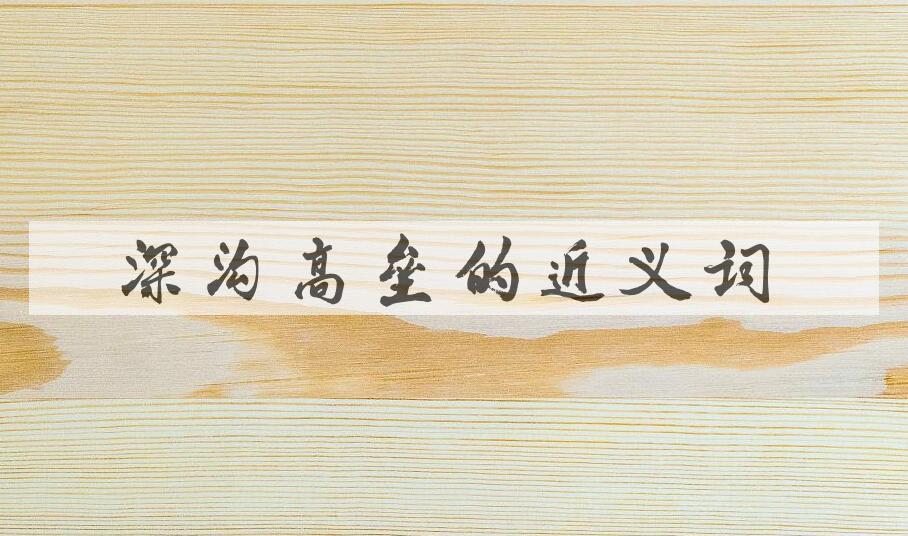 深沟高垒的近义词